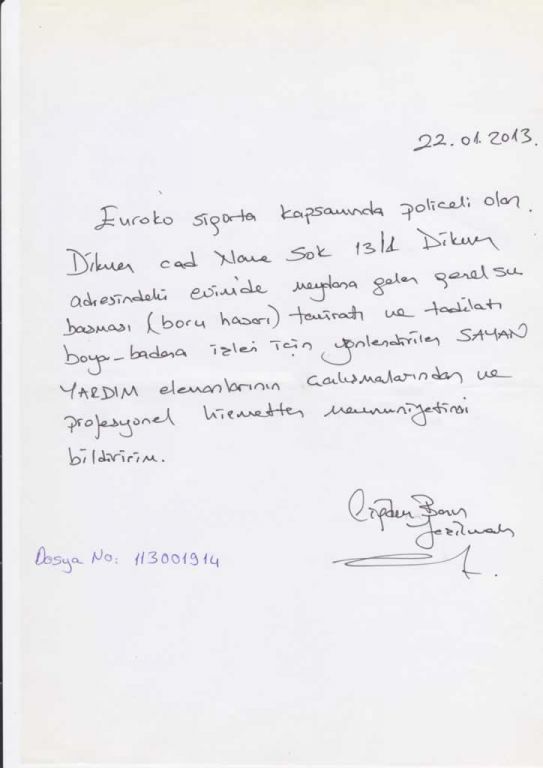 22.01.2013.
Euroko sigorta kapsamında policeli olan.
Dikmen cad Nane Sok 13/1 Dikmen
adresindeki evimde meydana gelen genel su
basması (boru hasarı) tamiratı ve tadilatı
boya-badana işleri için yönlendirilen SAYAN
YARDIM elemanlarının çalışmalarından ve
profesyonel hizmetten memnuniyetimi
bildiririm.
Çiğdem
Dosya No: 113001914